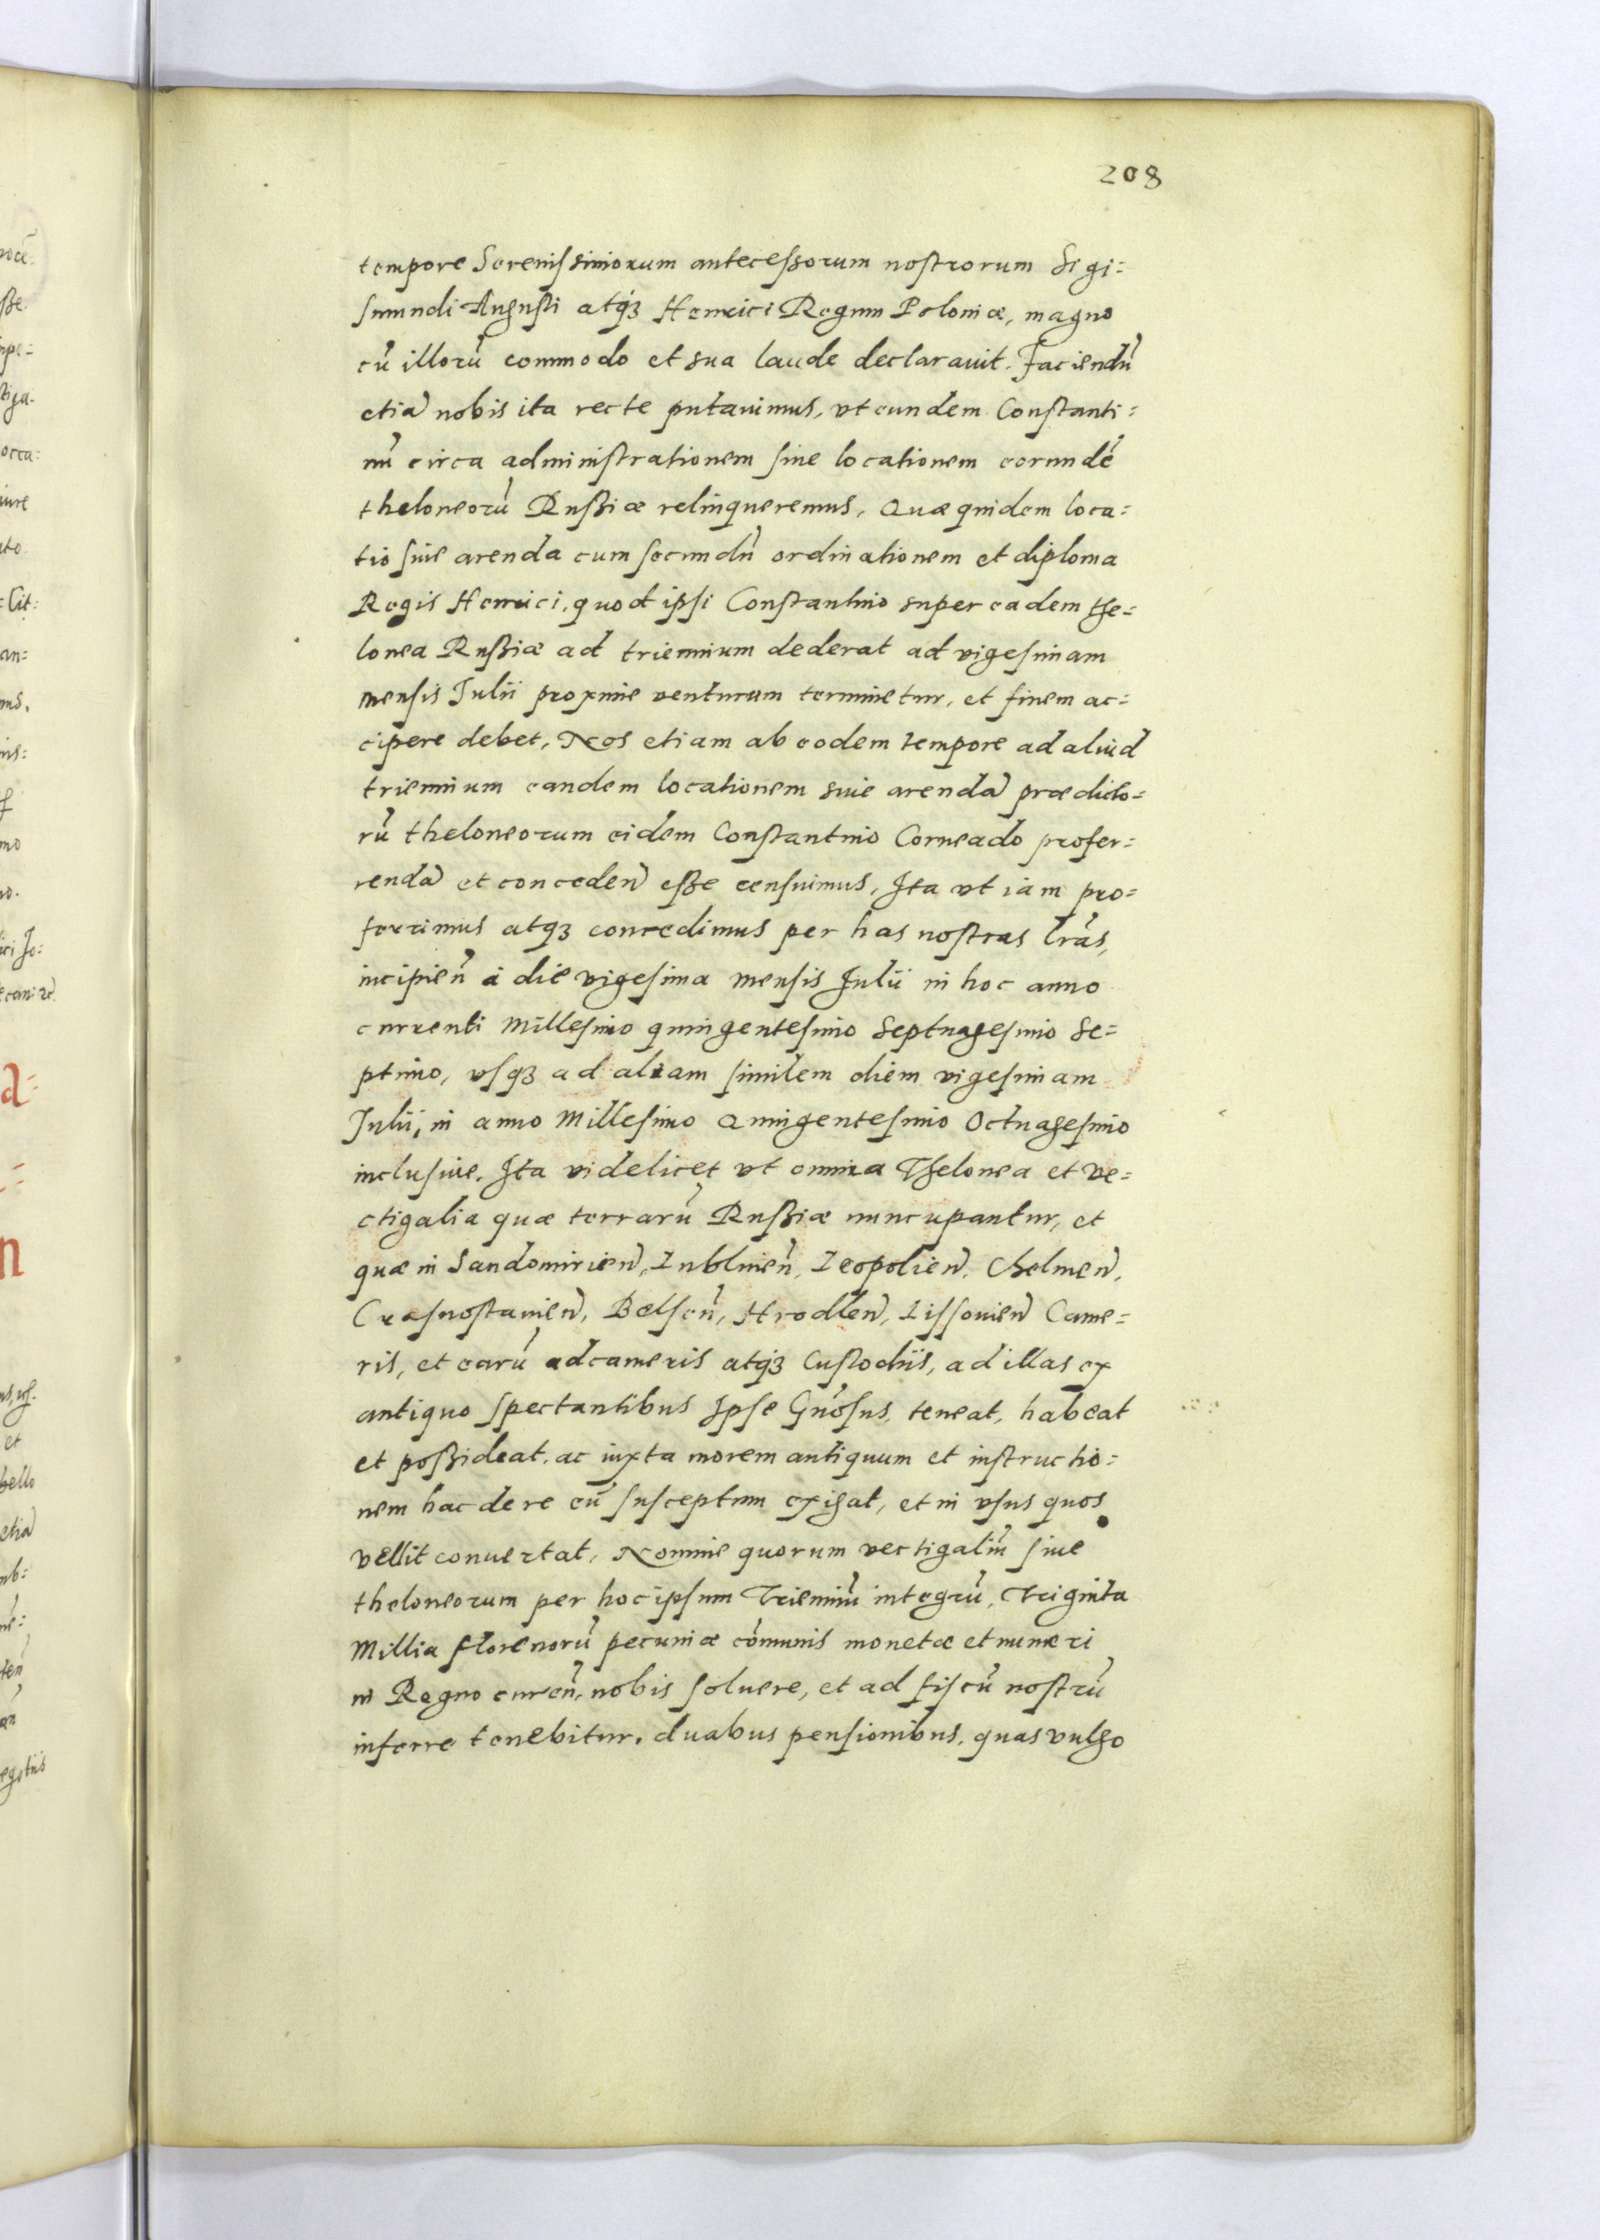 208
tempore Serenissimorum antecessorum nostrorum Sigi=
smundi Augusti atq3 Henrici Regum Poloniæ, magno
cū illorū commodo et sua laude declarauit. Faciendū
etiā nobis ita recte putauimus, vt eundem Constanti=
nū circa administrationem siue locationem eorundē
theloneorū Russiæ relinqueremus, Quæ quidem loca=
tio siue arenda cum secundū ordinationem et diploma
Regis Henrici, quod ipsi Constantino super eadem the=
lonea Russiæ ad triennium dederat ad vigesimam
mensis Julii proxime venturam terminetur, et finem ac=
cipere debet, Nos etiam ab eodem tempore ad aliud
triennium eandem locationem siue arendā prædicto=
rū theloneorum eidem Constantino Corneado profer=
rendā et conceden̄ esse censuimus, Ita vt iam pro=
ferrimus atq3 concedimus per has nostras l̄ras,
incipien̄ a die vigesima mensis Julii in hoc anno
currenti Millesimo quingentesimo Septuagesimo Se=
ptimo, vsq3 ad aliam similem diem vigesimam
Julii, in anno Millesimo Quingentesimo Octuagesimo
inclusiue. Ita videlicet vt omnia Thelonea et ve=
ctigalia quæ terrarū Russiæ nuncupantur, et
quæ in Sandomirien̄, Lublinen̄, Leopolien̄, Chelmen̄,
Crasnostauien̄, Belsen̄, Hrodlen̄, Lissouien̄ Came=
ris, et earū adcameris atq3 Custodiis, ad illas ex
antiquo spectantibus Ipse Gn̄osus, teneat, habeat
et possideat, ac iuxta morem antiquum et instructio=
nem hac de re eū susceptum exigat, et in vsus quos
vellit conuertat, Nomine quorum vectigaliū siue
theloneorum per hoc ipsum Trienniū integrū, Triginta
Millia florenorū pecuniæ cōmunis monetæ et numeri
in Regno curen̄, nobis soluere, et ad fiscū nostrū
inferre tenebitur, duabus pensionibus, quas vulgo